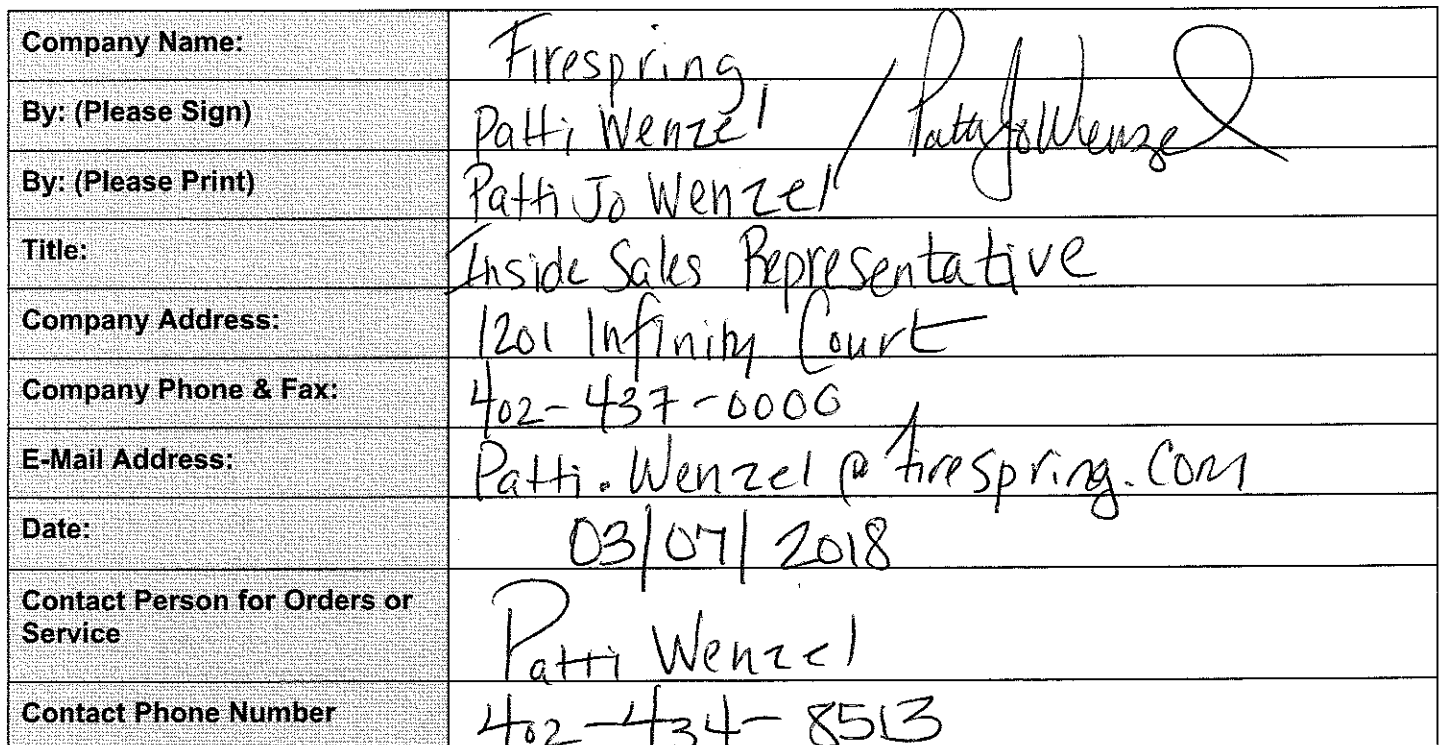 Company Name: Firespring
By: (Please Sign) Patti Wenzel / Patti Jo Wenzel
By: (Please Print) Patti Jo Wenzel
Title: Inside Sales Representative
Company Address: 1201 Infinity Court
Company Phone & Fax: 402-437-0000
E-Mail Address: Patti.Wenzel@firespring.com
Date: 03/07/2018
Contact Person for Orders or
Service Patti Wenzel
Contact Phone Number 402-434-8513